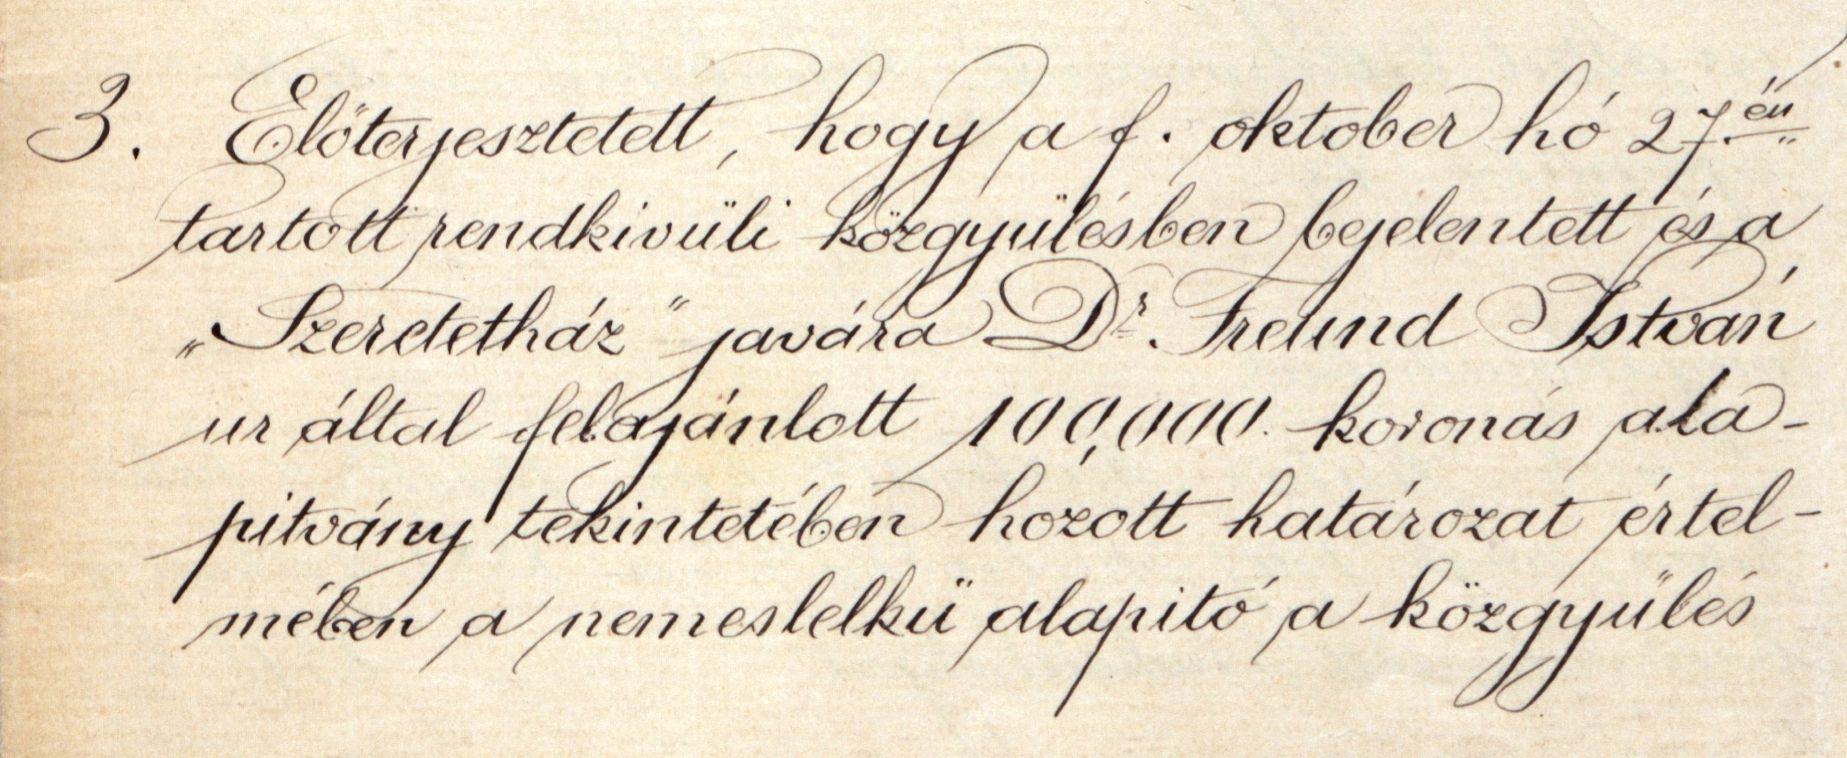 3. Előterjesztetett, hogy a f. oktober hó 27.én
tartott rendkivüli közgyülésben bejelentett és a
„Szeretetház” javára Dr. Freund István
ur által felajánlott 100,000. koronás ala-
pitvány tekintetében hozott határozat értel-
mében a nemeslelkü alapitó a közgyülés